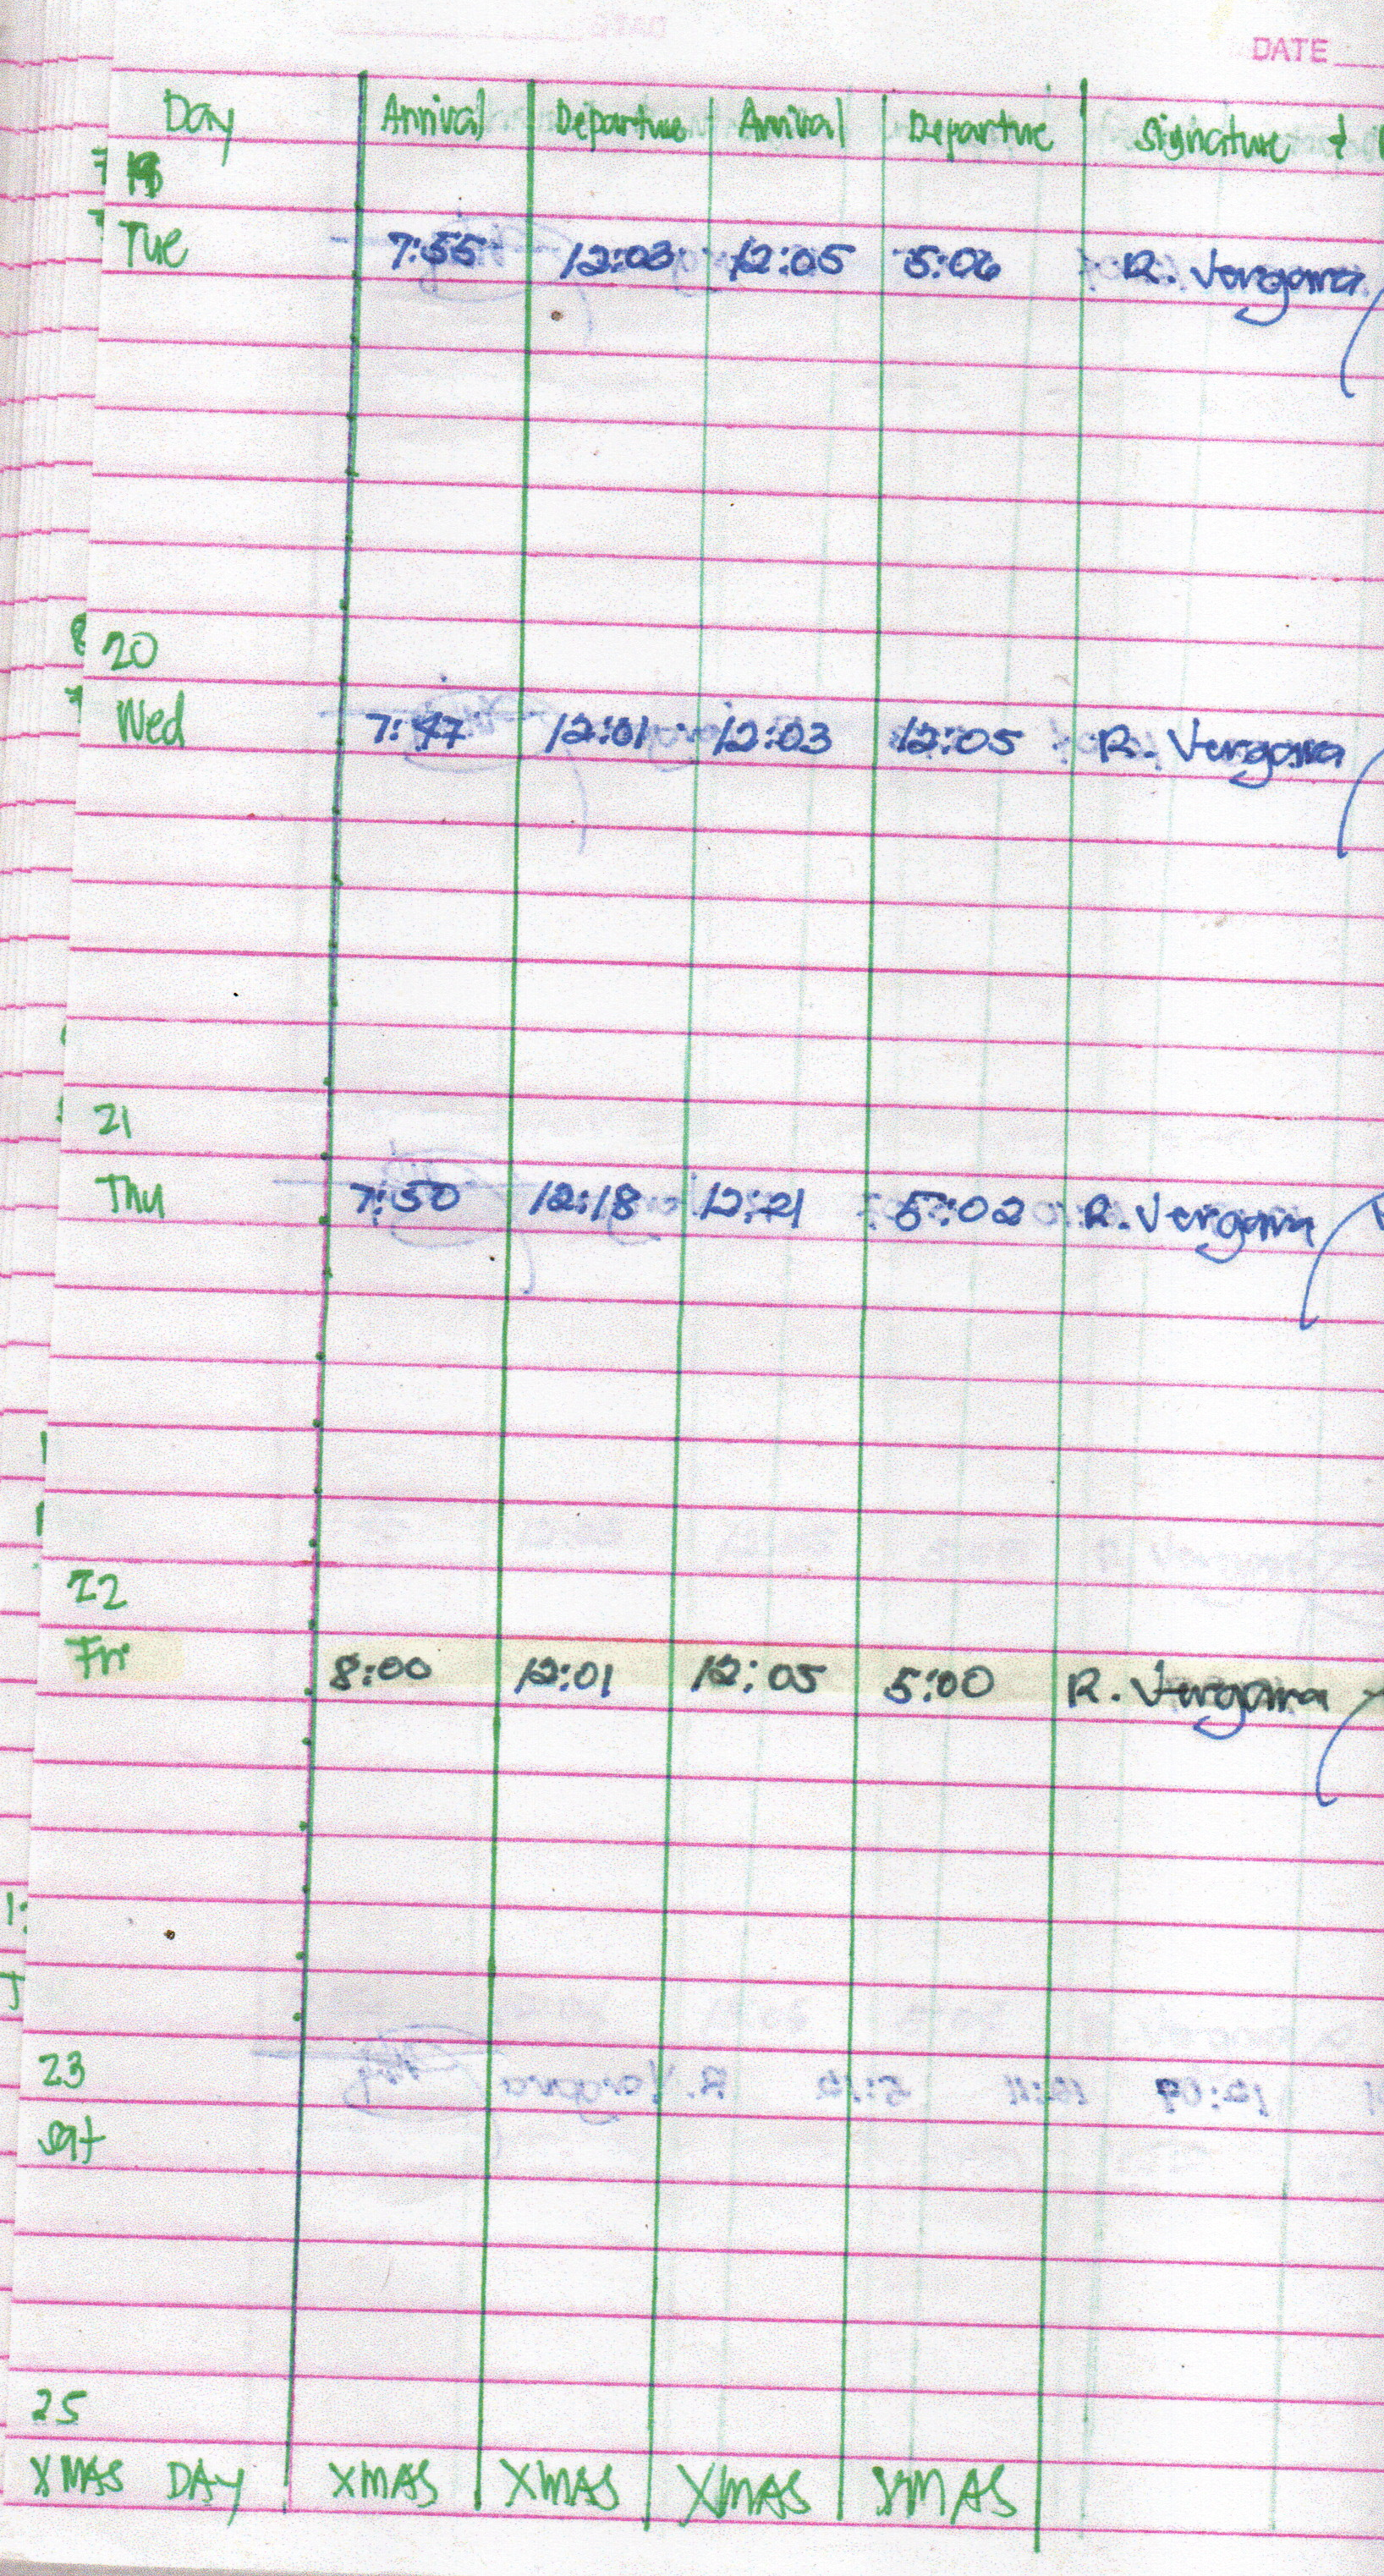 DATE
Day Arrival Departure Arrival Departure Signature &
19
Tue 7:55 12:03 12:05 5:06 R. Vergara
20
Wed 7:47 12:01 12:03 12:05 R. Vergara
21
Thu 7:50 12:18 12:21 5:02 R. Vergara
22
Fri 8:00 12:01 12:05 5:00 R. Vergara
23
Sat
25
XMAS DAY XMAS XMAS XMAS XMAS